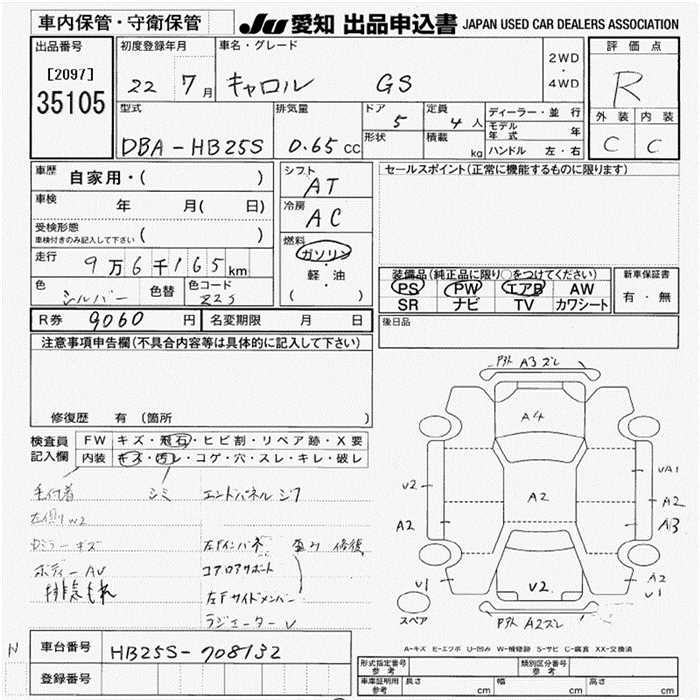 車内保管・守衛保管
JU 愛知 出品申込書 JAPAN USED CAR DEALERS ASSOCIATION
出品番号
[2097]
35105
初度登録年月
22 7月
車名・グレード
キャロル GS
2WD
・
4WD
評価点
R
外装 内装
C C
型式
DBA-HB25S
排気量
0.65 cc
ドア
5
定員
4人
形状
積載
kg
ディーラー・並行
モデル年式 年
ハンドル 左・右
車歴
自家用・( )
車検
年 月( 日)
受検形態
車検付きのみ記入して下さい ( )
走行
9万6千165km
色
シルバー
色替
色コード
Z2S
シフト
AT
冷房
AC
燃料
ガソリン
・
軽・油
( )
セールスポイント(正常に機能するものに限ります)
装備品(純正品に限り○をつけてください)
PS PW エアB AW
SR ナビ TV カワシート
新車保証書
有・無
R券 9060 円
名変期限 月 日
後日品
注意事項申告欄(不具合内容等は具体的に記入して下さい)
修復歴 有(箇所 )
検査員記入欄
FW キズ・飛石・ヒビ割・リペア跡・X要
内装 キズ・汚レ・コゲ・穴・スレ・キレ・破レ
毛付着 シミ エンドパネル ジワ
左側リ W2
ミラーキズ 左Fインパネ 歪み 修復
ボディーAU コアロアサポート
排気もれ 左Fサイドメンバー
ラジエーター U
アタリ A3 ズレ
A4
U2
UA1
A2
A2
A2
A3
U1
U2
A2
U1
アタリ A2ズレ
スペア
A-キズ E-エクボ U-凹み W-補修跡 S-サビ C-腐食 XX-交換済
N
車台番号 HB25S-708132
登録番号
形式指定番号
参考
類別区分番号
参考
車庫証明用
参考
長さ cm
幅 cm
高さ cm